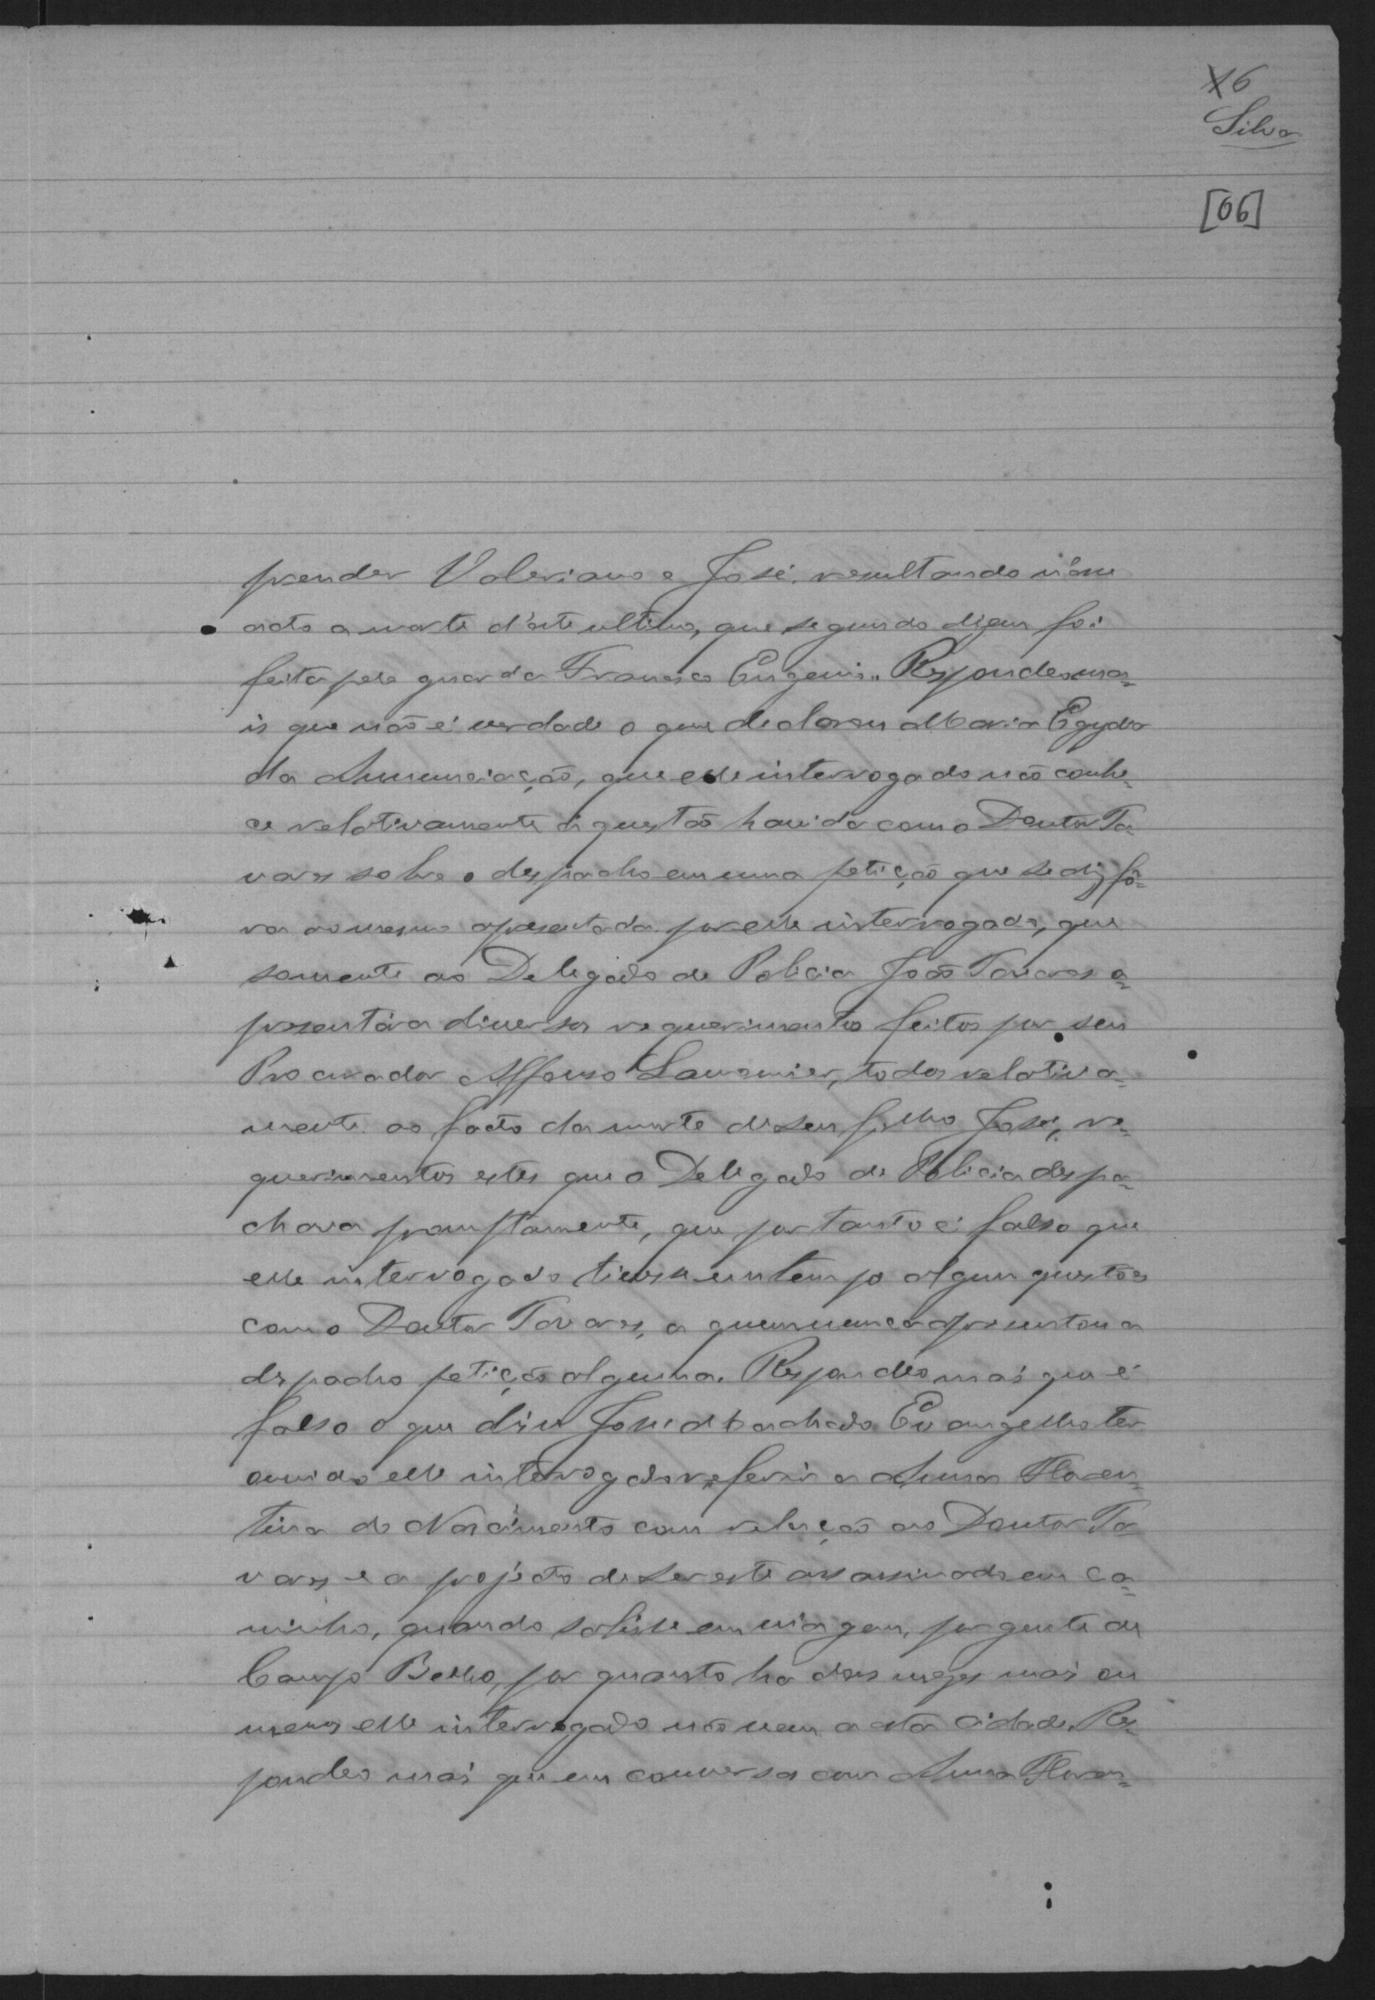 6
Silva
[06]
prender Valeriano e José, resultando n'esse
acto a morte d'este ultimo, que segundo dizem foi
feita pelo guarda Francisco Eugenio. Respondeu ma-
is que não é verdade o que declarou Maria Egydia
da Annunciação, que elle interrogado não conhe-
ce relativamente á questão havida com o Doutor Ta-
vares sobre o despacho em uma petição que se diz fô-
ra ao mesmo apresentada por elle interrogado, que
somente ao Delegado de Policia João Tavares a-
presentára diversos requerimentos feitos por seu
Procurador Affonso Lavernier, todos relativa-
mente ao facto da morte de seu filho José, re-
querimentos estes que o Delegado de Policia despa-
chava promptamente, que por tanto é falso que
elle interrogado tivesse em tempo algum questões
com o Doutor Tavares, a quem nunca apresentou a
despacho petição alguma. Respondeo mais que é
falso o que disse José Machado Evangelho ter
ouvido elle interrogado referir a Anna Floren-
tina do Nascimento com relação ao Doutor Ta
vares e a projecto de ser este assassinado em ca-
minho, quando sahisse em viagem, por gente de
Campo Bello, por quanto ha dois mezes mais ou
menos elle interrogado não vem a esta cidade. Res-
pondeo mais que em conversa com Anna Floren-